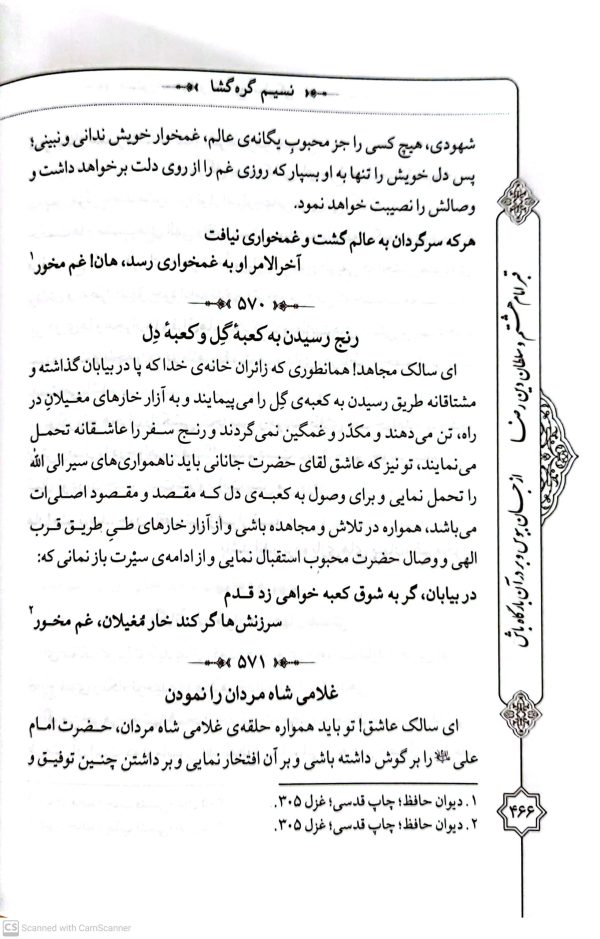 نسیم گره گشا
شهودی، هیچ کسی را جز محبوبِ یگانه‌ی عالم، غمخوار خویش ندانی و نبینی؛
پس دل خویش را تنها به او بسپار که روزی غم را از روی دلت برخواهد داشت و
وصالش را نصیبت خواهد نمود.
هرکه سرگردان به عالم گشت و غمخواری نیافت
آخرالامر او به غمخواری رسد، هان! غم مخور۱
۵۷۰
رنج رسیدن به کعبهٔ گِل و کعبهٔ دِل
ای سالک مجاهد! همانطوری که زائران خانه‌ی خدا که پا در بیابان گذاشته و
مشتاقانه طریق رسیدن به کعبه‌ی گِل را می‌پیمایند و به آزار خارهای مغیلان در
راه، تن می‌دهند و مکدّر و غمگین نمی‌گردند و رنج سفر را عاشقانه تحمل
می‌نمایند، تو نیز که عاشق لقای حضرت جانانی باید ناهمواری‌های سیر الی الله
را تحمل نمایی و برای وصول به کعبه‌ی دل که مقصد و مقصود اصلی‌ات
می‌باشد، همواره در تلاش و مجاهده باشی و از آزار خارهای طیِ طریق قرب
الهی و وصال حضرت محبوب استقبال نمایی و از ادامه‌ی سیْرت باز نمانی که:
در بیابان، گر به شوق کعبه خواهی زد قدم
سرزنش‌ها گر کند خار مُغیلان، غم مخور۲
۵۷۱
غلامی شاه مردان را نمودن
ای سالک عاشق! تو باید همواره حلقه‌ی غلامی شاه مردان، حضرت امام
علی علیه‌السلام را بر گوش داشته باشی و بر آن افتخار نمایی و بر داشتن چنین توفیق و
۱. دیوان حافظ؛ چاپ قدسی؛ غزل ۳۰۵.
۲. دیوان حافظ؛ چاپ قدسی؛ غزل ۳۰۵.
قبر امام هشتم و سلطان دین رضا از جان ببوس و بر در آن بارگاه باش
۴۶۶
CS Scanned with CamScanner